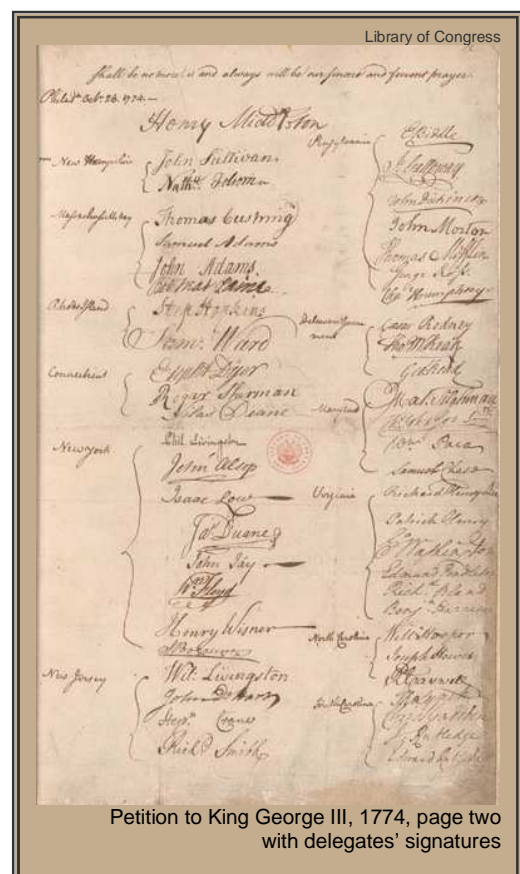 Library of Congress
shall be no more; and always will be our sincere and fervent prayer.
Philada. Octr. 26. 1774.—
Henry Middleton
New Hampshire
John Sullivan
Nathl. Folsom
Massachusetts bay
Thomas Cushing
Samuel Adams
John Adams.
Rhode Island
Step Hopkins
Sam: Ward
Connecticut
Elipht Dyer
Roger Sherman
Silas Deane
New York
Phil. Livingston
John Alsop
Isaac Low
Jas. Duane
John Jay
Wm. Floyd
Henry Wisner
New Jersey
Wil: Livingston
John De Hart
Stepn. Crane
Richd Smith
Pennsylvania
E Biddle
J: Galloway
John Dickinson
John Morton
Thomas Mifflin
George Ross
Chas Humphreys
Delaware Government
Caesar Rodney
Tho M:Kean
Geo: Read
Maryland
Mat. Tilghman
Wm. Paca
Samuel Chase
Virginia
Richard Henry Lee
Patrick Henry
Go Washington
Edmund Pendleton
Richd. Bland
Benjn. Harrison
North Carolina
Will Hooper
Joseph Hewes
South Carolina
J Rutledge
Edward Rutledge
Petition to King George III, 1774, page two
with delegates’ signatures